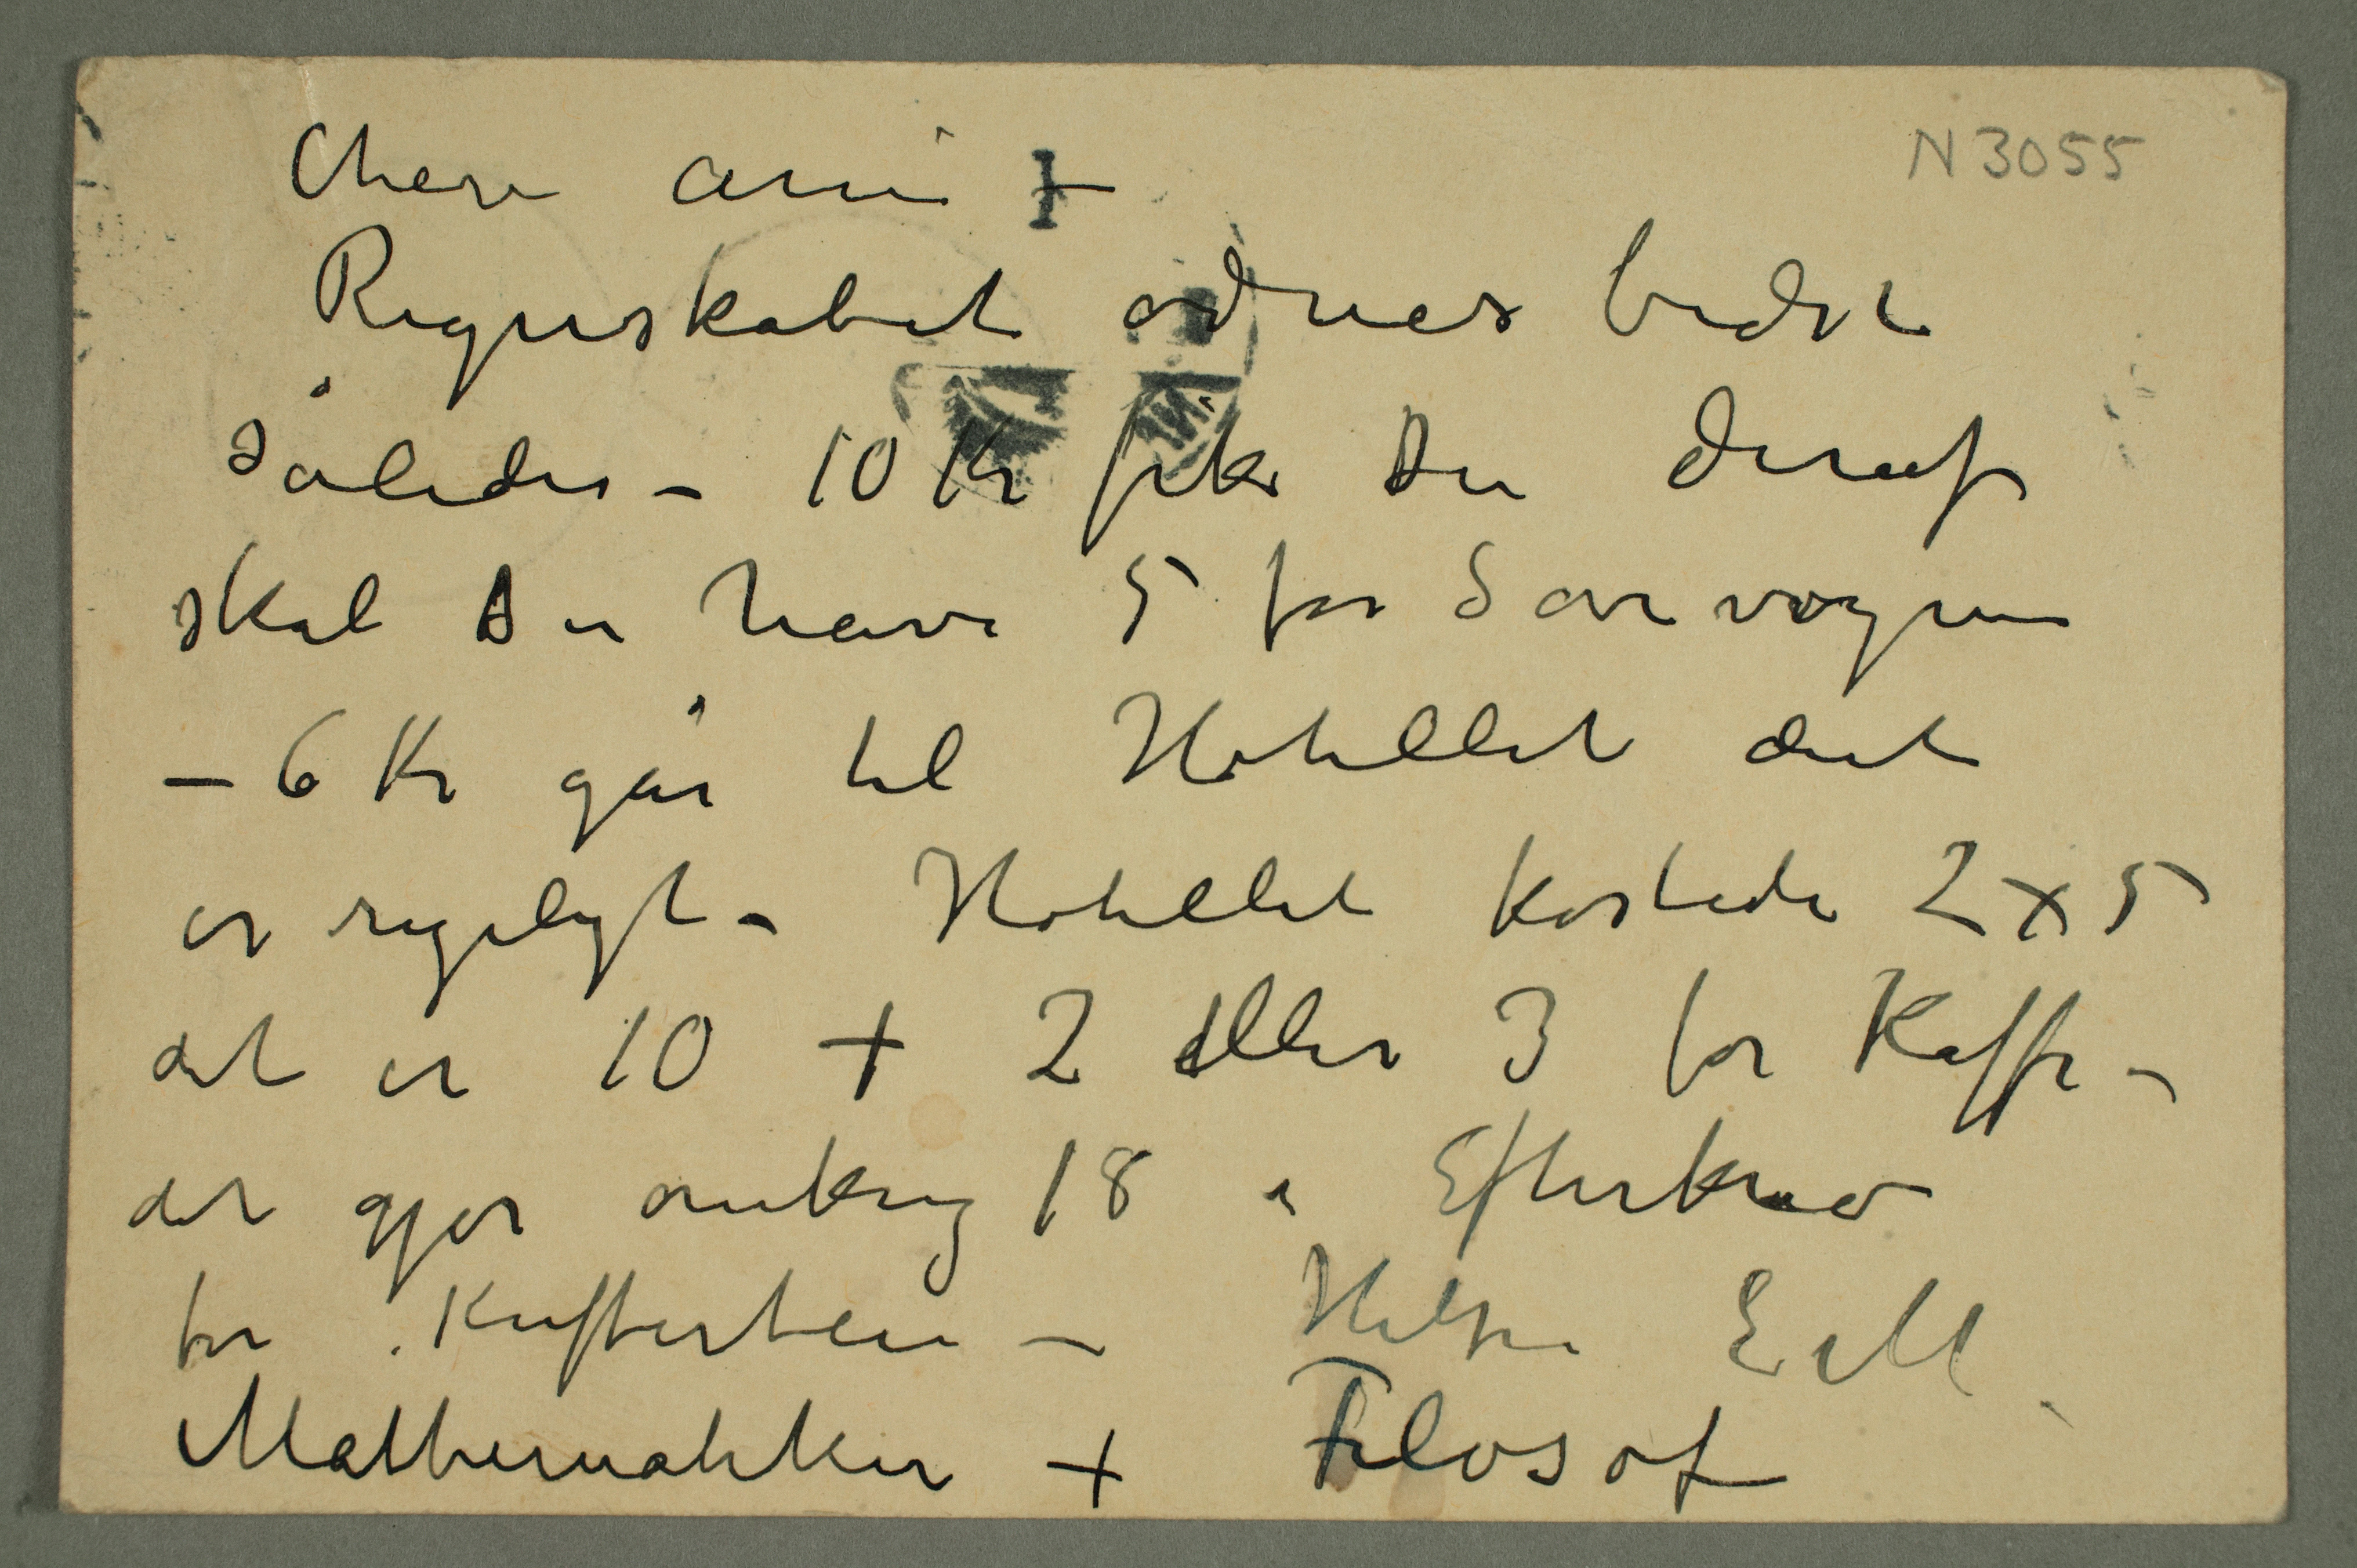 Chere ami –
N 3055
Regnskabet ordnes bedst
således – 10 Kr fik Du deraf
skal Du have 5 for Sovevognen
– 6 Kr går til Hotellet det
er rigeligt – Hotellet kostede 2 × 5
det er 10 + 2 eller 3 for Kaffe –
det gjør omkring 18 i Efterkrav
for Kufferten – Hilsen E M
Mathematiker + Filosof